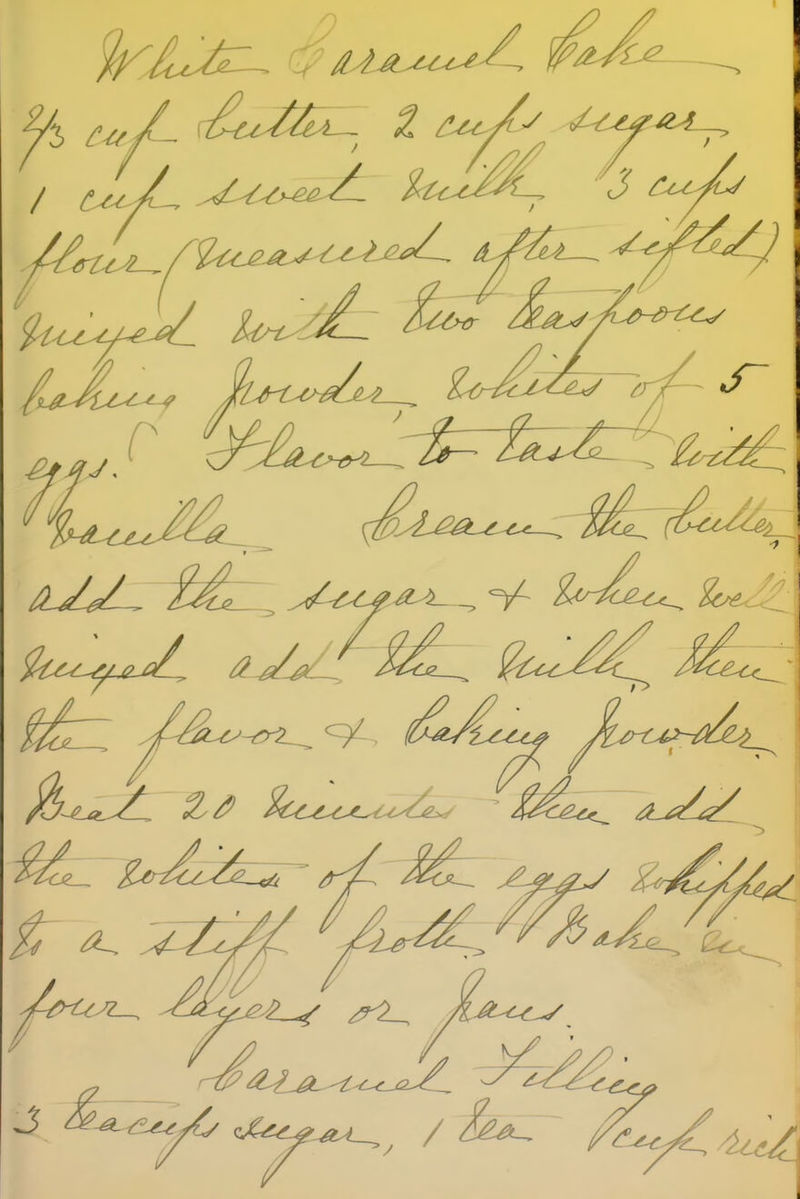 White Caramel Cake
2/3 cup butter, 2 cups sugar,
1 cup sweet milk, 3 cups
flour (measured after sifted)
mixed with two teaspoons
baking powder, whites of 5
eggs. Flavor to taste with
vanilla Cream the butter,
add the sugar & when well
mixed add the milk, then
the flavor & baking powder
Beat 20 minutes then add
the whites of the eggs whipped
to a stiff froth, Bake in
four layers or pans.
Caramel Filling
3 teacups sugar, 1 tea cup rich